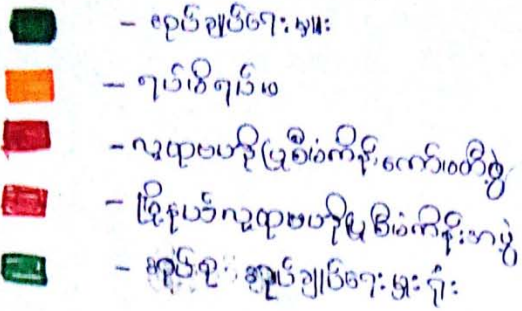 - အုပ်ချုပ်ရေးမှူး
- ရပ်မိရပ်ဖ
- လူထုဗဟိုပြုစီမံကိန်းကော်မတီဖွဲ့
- မြို့နယ်လူထုဗဟိုပြုစီမံကိန်းအဖွဲ့
- အုပ်စု အုပ်ချုပ်ရေးမှူးရုံး